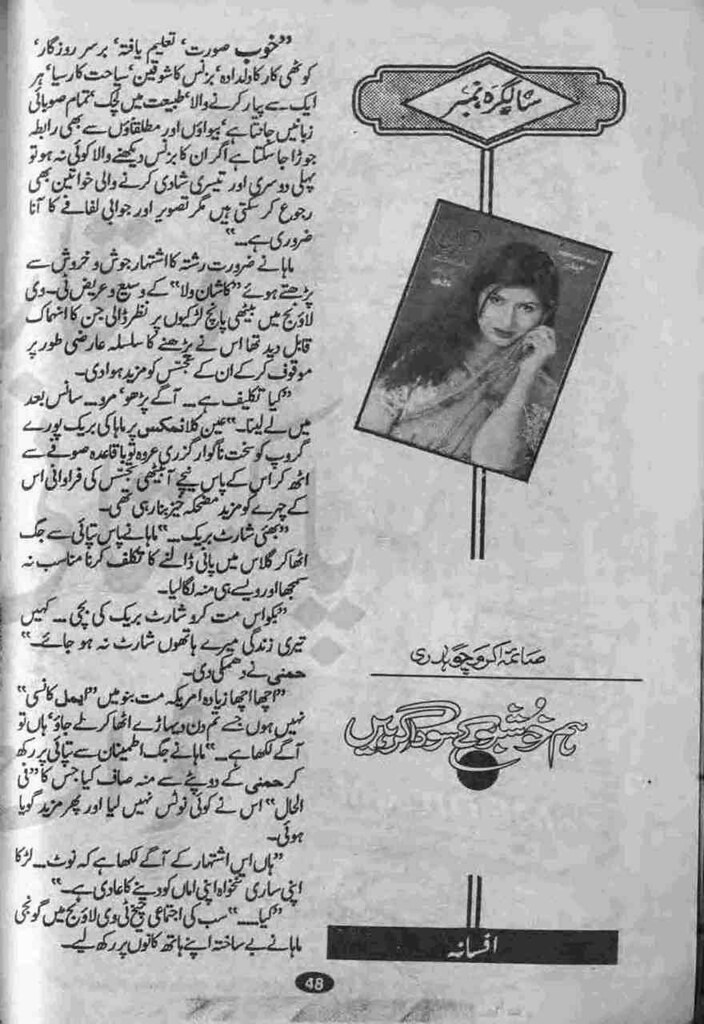 سالگرہ نمبر
صائمہ اکرم چوہدری
ہم خوشبو کے سوداگر ہیں
افسانہ
”خوب صورت‘ تعلیم یافتہ‘ برسر روزگار‘
کوٹھی کار کا دلدادہ‘ بزنس کا شوقین‘ سیاحت کا رسیا‘ ہر
ایک سے پیار کرنے والا‘ طبیعت میں لچک‘ تمام صوبائی
زبانیں جانتا ہے‘ بیواؤں اور مطلقاؤں سے بھی رابطہ
جوڑا جا سکتا ہے اگر ان کا بزنس دیکھنے والا کوئی نہ ہو تو
پہلی دوسری اور تیسری شادی کرنے والی خواتین بھی
رجوع کر سکتی ہیں مگر تصویر اور جوابی لفافے کا آنا
ضروری ہے۔۔۔“
ماہا نے ضرورت رشتہ کا اشتہار جوش و خروش سے
پڑھتے ہوئے ”کاشان ولا“ کے وسیع و عریض ٹی۔وی
لاؤنج میں بیٹھی پانچ لڑکیوں پر نظر ڈالی جن کا انہماک
قابل دید تھا اس نے پڑھنے کا سلسلہ عارضی طور پر
موقوف کر کے ان کے تجسس کو مزید ہوا دی۔
”کیا تکلیف ہے۔۔۔ آگے پڑھو‘ مرو۔۔۔ سانس بعد
میں لے لینا۔“ عین کلائمکس پر ماہا کی بریک پورے
گروپ کو سخت ناگوار گزری عروہ تو باقاعدہ صوفے سے
اٹھ کر اس کے پاس نیچے آ بیٹھی تجسس کی فراوانی اس
کے چہرے کو مزید مضحکہ خیز بنا رہی تھی۔
”بھئی شارٹ بریک۔۔۔“ ماہا نے پاس تپائی سے جگ
اٹھا کر گلاس میں پانی ڈالنے کا تکلف کرنا مناسب نہ
سمجھا اور ویسے ہی منہ لگا لیا۔
”بکواس مت کرو شارٹ بریک کی بچی۔۔۔ کہیں
تیری زندگی میرے ہاتھوں شارٹ نہ ہو جائے۔“
حمنیٰ نے دھمکی دی۔
”اچھا اچھا زیادہ امریکہ مت بنو میں ”ایمل کانسی“
نہیں ہوں جسے تم دن دیہاڑے اٹھا کر لے جاؤ‘ ہاں تو
آگے لکھا ہے۔۔۔“ ماہا نے جگ اطمینان سے تپائی پر رکھ
کر حمنیٰ کے دوپٹے سے منہ صاف کیا جس کا ”فی
الحال“ اس نے کوئی نوٹس نہیں لیا اور پھر مزید گویا
ہوئی۔
”ہاں اس اشتہار کے آگے لکھا ہے کہ نوٹ۔۔۔ لڑکا
اپنی ساری تنخواہ اپنی اماں کو دینے کا عادی ہے۔“
”کیا۔۔۔۔“ سب کی اجتماعی چیخ ٹی وی لاؤنج میں گونجی
ماہا نے بے ساختہ اپنے ہاتھ کانوں پر رکھ لیے۔
48